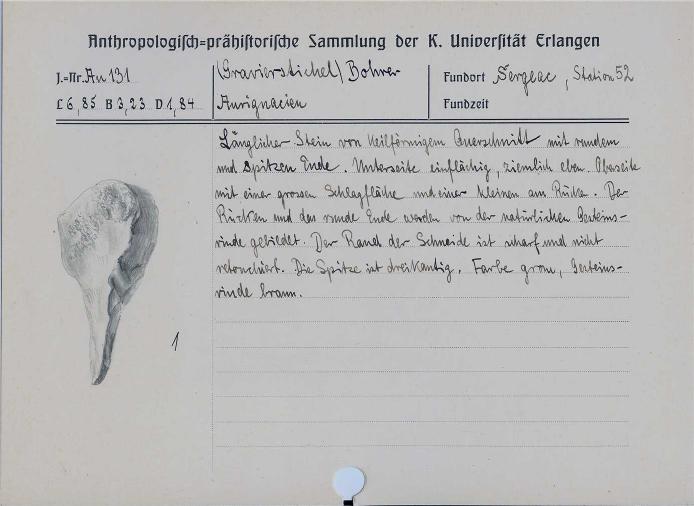 Anthropologisch=prähistorische Sammlung der K. Universität Erlangen
J.=Nr. An 131
(Gravierstichel) Bohrer
Fundort Sergeac, Station 52
L 6,85 B 3,23 D 1,84
Aurignacien
Fundzeit
Länglicher Stein von keilförmigem Querschnitt mit rundem
und spitzen Ende. Unterseite einflächig, ziemlich eben. Oberseite
mit einer grossen Schlagfläche und einer kleinen am Rücken. Der
Rücken und das runde Ende werden von der natürlichen Gesteins-
rinde gebildet. Der Rand der Schneide ist scharf und nicht
retouchiert. Die Spitze ist dreikantig. Farbe grau, Gesteins-
rinde braun.
1